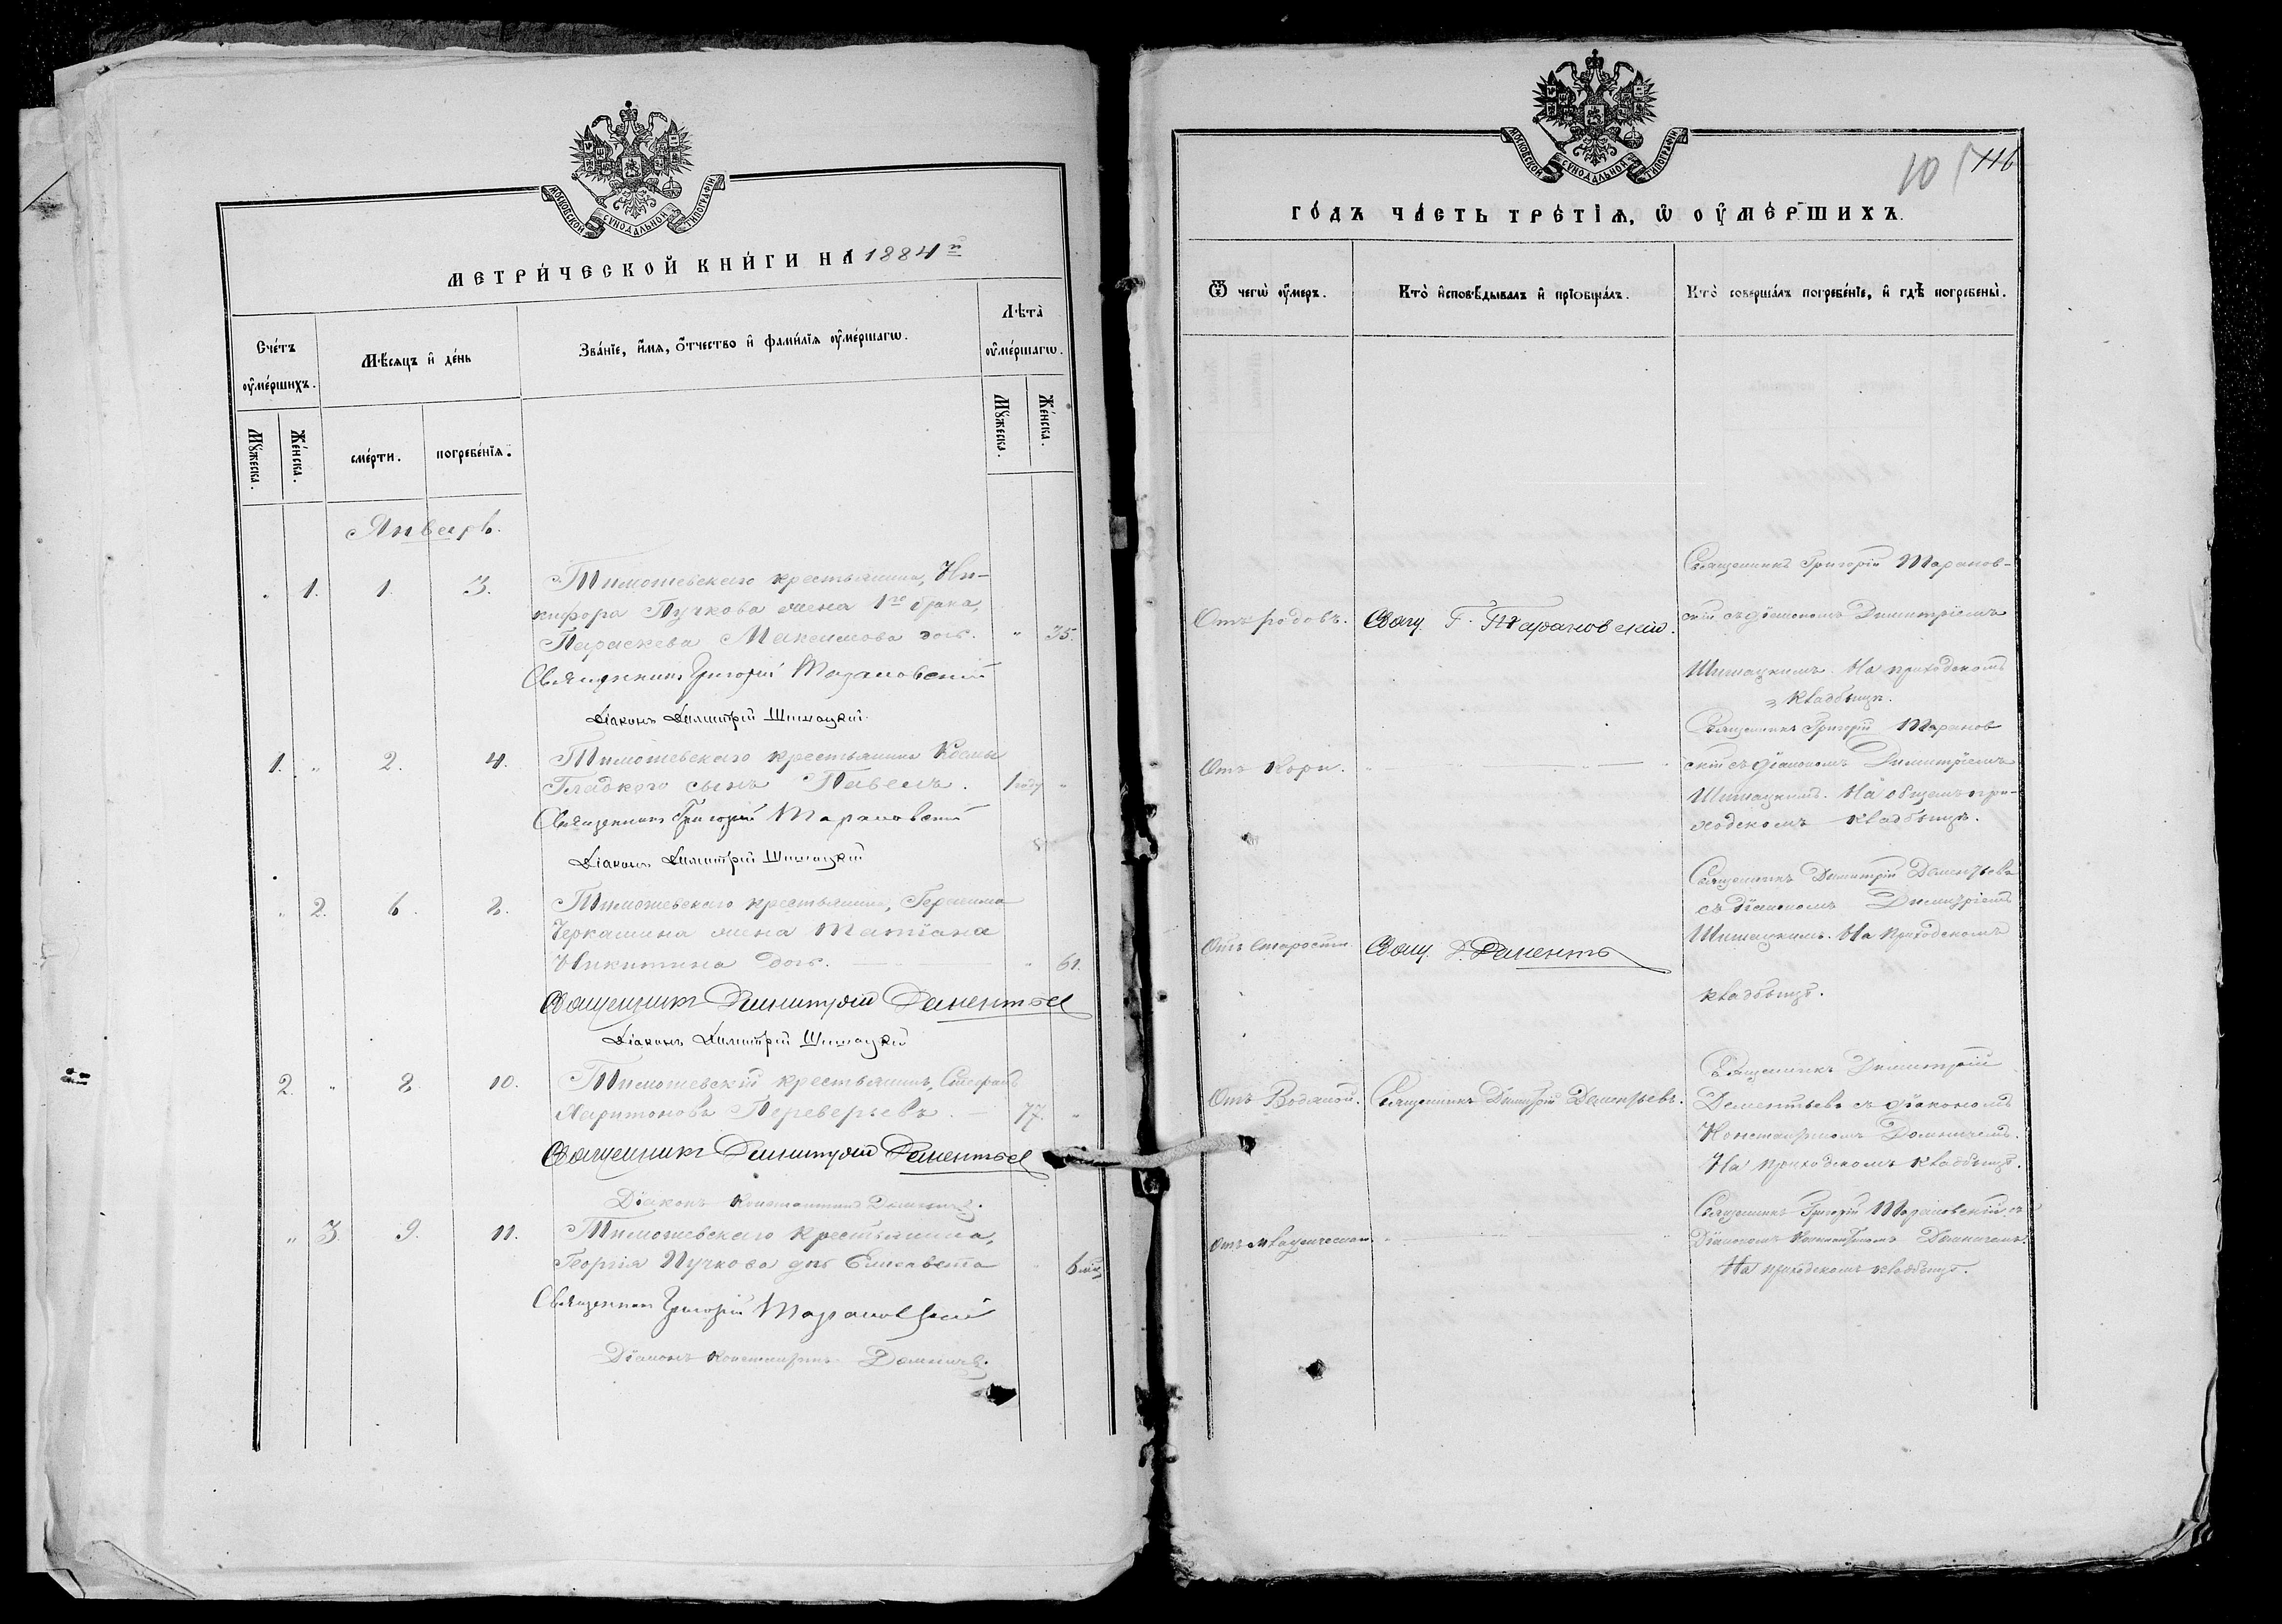 МОСКОВСКОЙ СѴНОДАЛЬНОЙ ТИПОГРАФІИ
МЕТРИ́ЧЕСКОЙ КНИ́ГИ НА 1884й
Сче́тъ ᲂу҆ме́ршихъ.
Мѣ́сяцъ и҆ де́нь
Зва́нїе, и҆́мѧ, ѻ҆́тчество и҆ фами́лїѧ ᲂу҆ме́ршагѡ.
Лѣта̀ ᲂу҆ме́ршагѡ.
Мꙋ́жеска.
Же́нска.
сме́рти.
погребе́нїѧ.
Мꙋ́жеска.
Же́нска.
Январь.
" 1. 1. 3. Тимошевскаго крестьянина, Ни-
кифора Пучкова жена 1го брака,
Параскева Максимова дочь. " 35.
Священникъ Григорій Тарановскій
Діаконъ Димитрій Шишацкій
1. " 2. 4. Тимошевскаго крестьянина Космы
Гладкого сынъ Павелъ. 1 году "
Священникъ Григорій Тарановскій
Діаконъ Димитрій Шишацкій
" 2. 6. 8. Тимошевскаго крестьянина, Герасима
Черкашина жена Татіана
Никитина дочь. " 61.
Священникъ Димитрій Дементьев
Діаконъ Димитрій Шишацкій
2. " 8. 10. Тимошевскій крестьянинъ, Стефанъ
Харитоновъ Переверзевъ. 77. "
Священникъ Димитрій Дементьев
Діаконъ Константинъ Домничъ.
" 3. 9. 11. Тимошевскаго крестьянина,
Георгія Пучкова дчь Елисавета " 6 мѣс.
Священникъ Григорій Тарановскій
Діаконъ Константинъ Домничъ.
МОСКОВСКОЙ СѴНОДАЛЬНОЙ ТИПОГРАФІИ
10 116
ГО́ДЪ ЧА́СТЬ ТРЕ́ТЇѦ, Ѡ҆ ᲂУ҆МЕ́РШИХЪ.
Ѿ чегѡ̀ ᲂу҆́меръ.
Кто̀ и҆сповѣ́дывалъ и҆ прїѻбща́лъ.
Кто̀ соверша́лъ погребе́нїе, и҆ гдѣ̀ погребены̀.
Отъ родовъ. Свящ. Г. Тарановскій.
Священникъ Григорій Таранов-
скій съ діакономъ Димитріемъ
Шишацкимъ. На приходскомъ
кладбищѣ.
Отъ кори.
Священникъ Григорій Таранов
скій съ діакономъ Димитріемъ
Шишацкимъ. На общемъ при-
ходскомъ кладбищѣ.
Отъ старости. Свящ. Д. Дементь
Священникъ Димитрій Дементьевъ
съ діакономъ Димитріемъ
Шишацкимъ. На приходскомъ
кладбищѣ.
Отъ Водяной. Священникъ Димитрій Дементьевъ.
Священникъ Димитрій
Дементьевъ съ діакономъ
Константиномъ Домничемъ.
На приходскомъ кладбищѣ.
Отъ младенческой.
Священникъ Григорій Тарановскій съ
Діакономъ Константиномъ Домничемъ
На приходскомъ кладбищѣ.